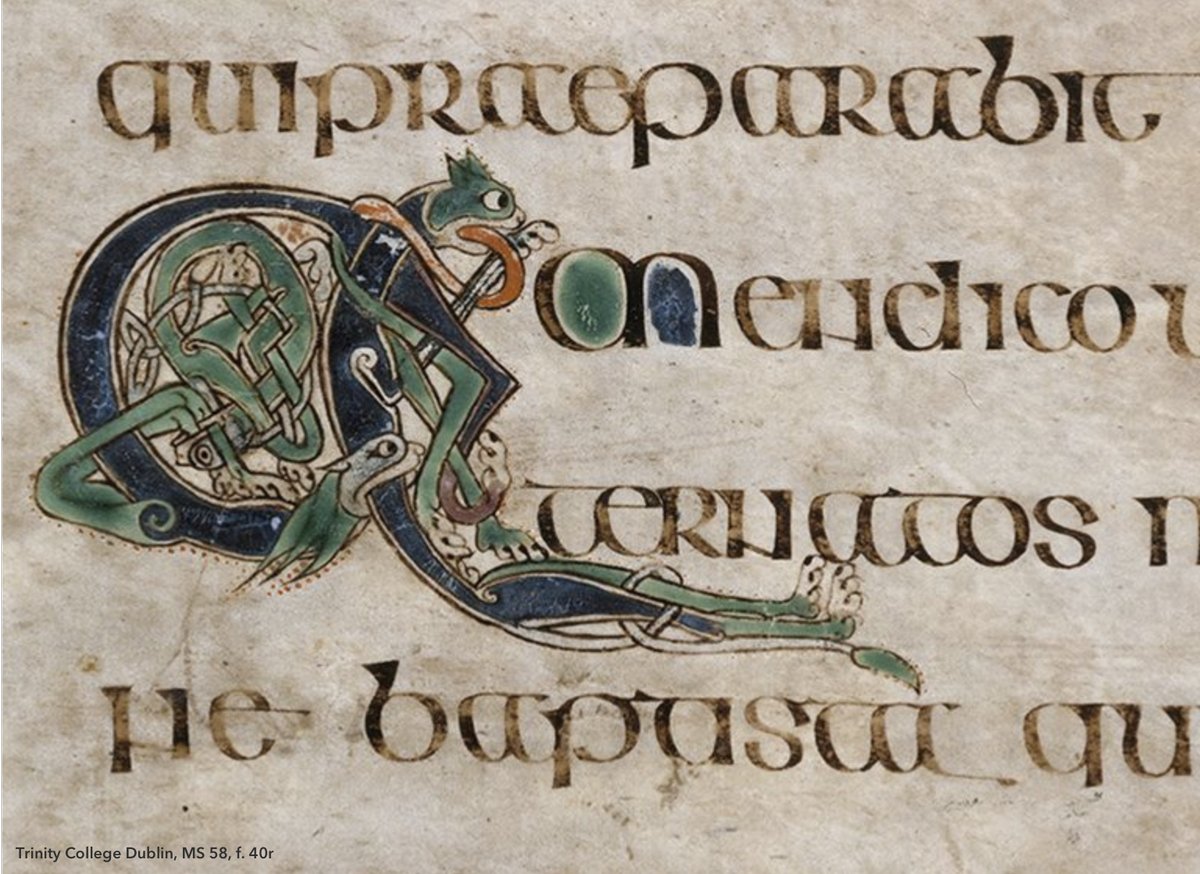 qui praeparabit
Amen dico u
ter natos m
ne baptista qu
Trinity College Dublin, MS 58, f. 40r